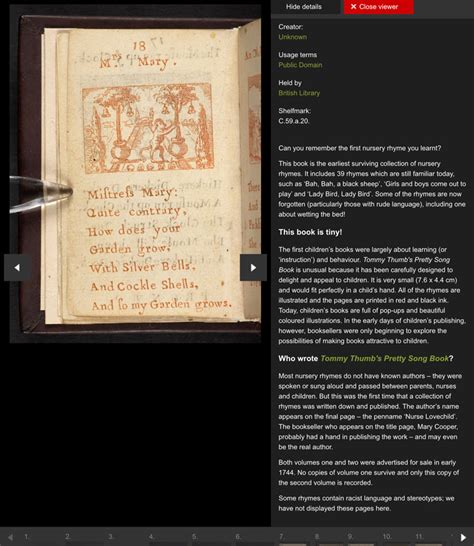 Hide details
✕ Close viewer
18
Mrs. Mary.
Miſtreſs Mary:
Quite contrary,
How does your
Garden grow,
With Silver Bells,
And Cockle Shells,
And ſo my Garden grows.
Creator:
Unknown
Usage terms
Public Domain
Held by
British Library
Shelfmark:
C.59.a.20.
Can you remember the first nursery rhyme you learnt?
This book is the earliest surviving collection of nursery
rhymes. It includes 39 rhymes which are still familiar today,
such as 'Bah, Bah, a black sheep', 'Girls and boys come out to
play' and 'Lady Bird, Lady Bird'. Some of the rhymes are now
forgotten (particularly those with rude language), including one
about wetting the bed!
This book is tiny!
The first children's books were largely about learning (or
'instruction') and behaviour. Tommy Thumb's Pretty Song
Book is unusual because it has been carefully designed to
delight and appeal to children. It is very small (7.6 x 4.4 cm)
and would fit perfectly in a child's hand. All of the rhymes are
illustrated and the pages are printed in red and black ink.
Today, children's books are full of pop-ups and beautiful
coloured illustrations. In the early days of children's publishing,
however, booksellers were only beginning to explore the
possibilities of making books attractive to children.
Who wrote Tommy Thumb's Pretty Song Book?
Most nursery rhymes do not have known authors – they were
spoken or sung aloud and passed between parents, nurses
and children. But this was the first time that a collection of
rhymes was written down and published. The author's name
appears on the final page – the penname 'Nurse Lovechild'.
The bookseller who appears on the title page, Mary Cooper,
probably had a hand in publishing the work – and may even
be the real author.
Both volumes one and two were advertised for sale in early
1744. No copies of volume one survive and only this copy of
the second volume is recorded.
Some rhymes contain racist language and stereotypes; we
have not displayed these pages here.
1. 2. 3. 4. 5. 6. 7. 8. 9. 10. 11.